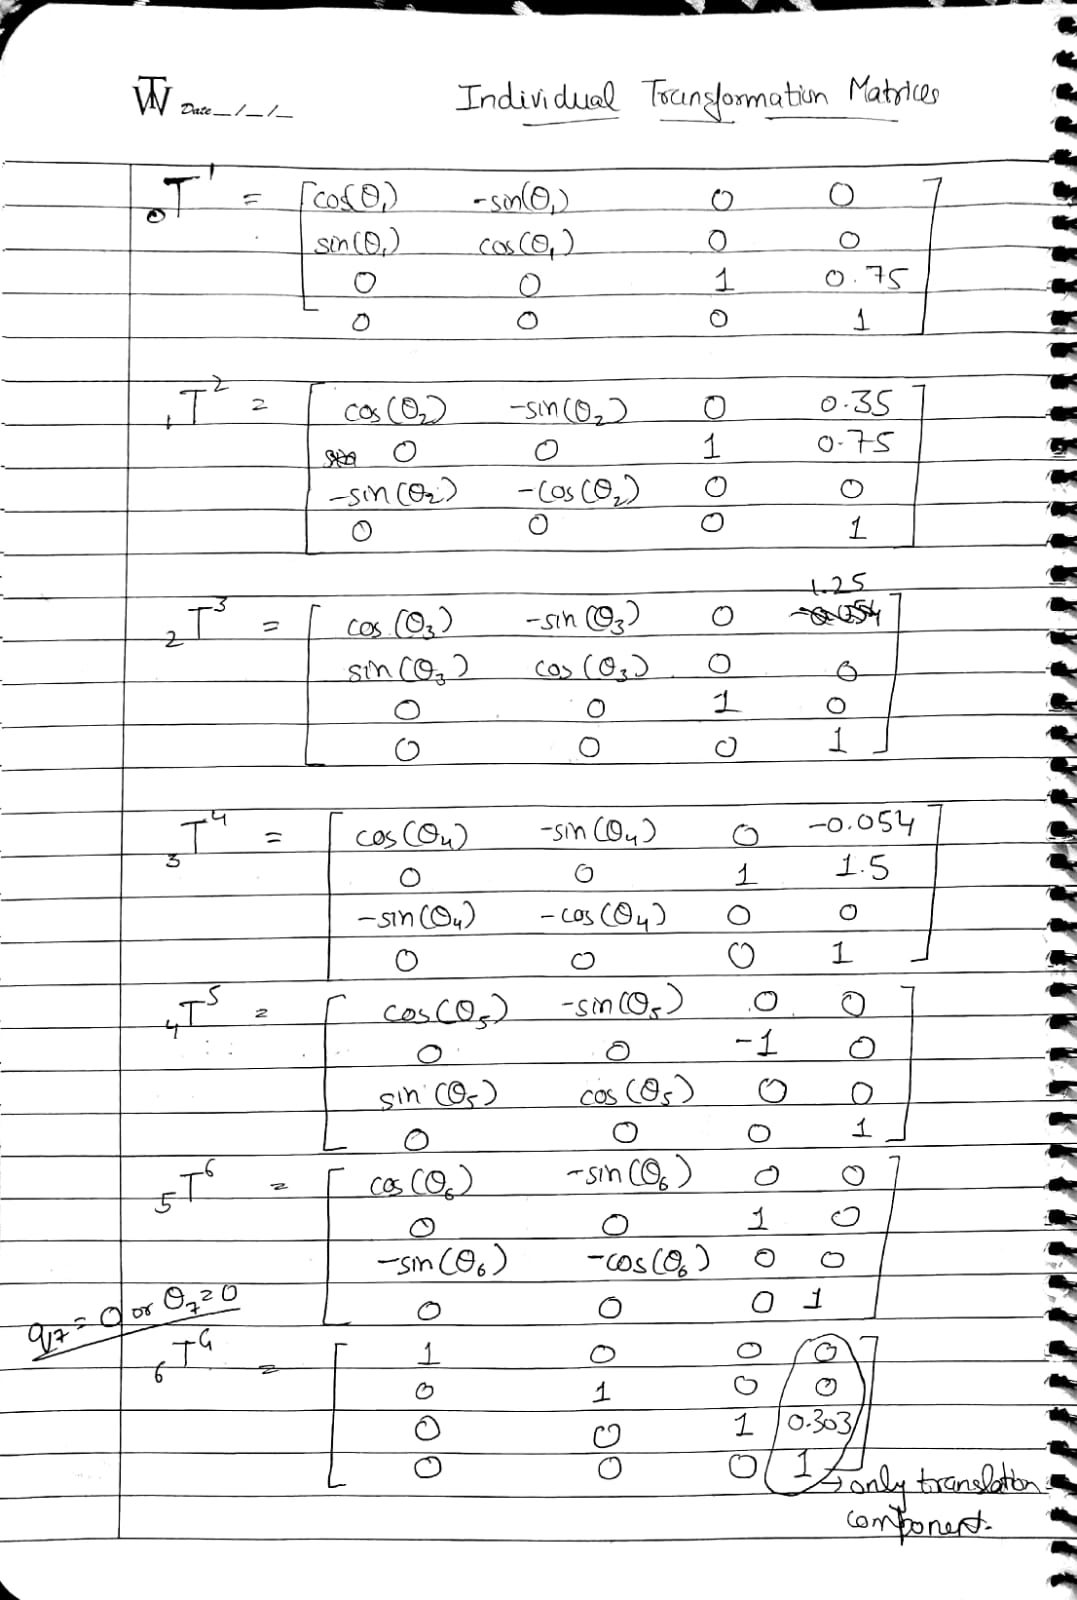 TW Date_/_/_ Individual Transformation Matrices
₀T¹ = [cos(θ₁) -sin(θ₁) 0 0
sin(θ₁) cos(θ₁) 0 0
0 0 1 0.75
0 0 0 1]
₁T² = [cos(θ₂) -sin(θ₂) 0 0.35
0 0 1 0.75
-sin(θ₂) -cos(θ₂) 0 0
0 0 0 1]
1.25
₂T³ = [cos(θ₃) -sin(θ₃) 0
sin(θ₃) cos(θ₃) 0 0
0 0 1 0
0 0 0 1]
₃T⁴ = [cos(θ₄) -sin(θ₄) 0 -0.054
0 0 1 1.5
-sin(θ₄) -cos(θ₄) 0 0
0 0 0 1]
₄T⁵ = [cos(θ₅) -sin(θ₅) 0 0
0 0 -1 0
sin(θ₅) cos(θ₅) 0 0
0 0 0 1]
₅T⁶ = [cos(θ₆) -sin(θ₆) 0 0
0 0 1 0
-sin(θ₆) -cos(θ₆) 0 0
0 0 0 1]
q₇ = 0 or θ₇ = 0
₆Tᴳ = [1 0 0 0
0 1 0 0
0 0 1 0.303
0 0 0 1]
→ only translation
component.